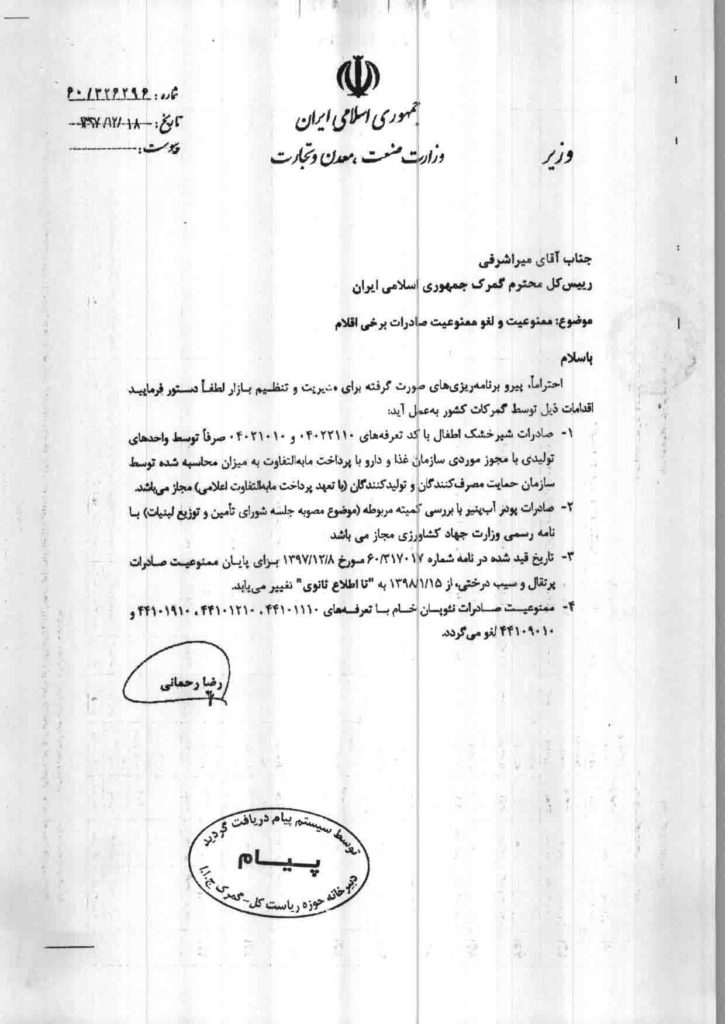 شماره: ۶۰/۳۲۶۲۹۶
تاریخ: ۱۳۹۷/۱۲/۱۸
پیوست:
جمهوری اسلامی ایران
وزارت صنعت، معدن و تجارت
وزیر
جناب آقای میراشرفی
رییس‌کل محترم گمرک جمهوری اسلامی ایران
موضوع: ممنوعیت و لغو ممنوعیت صادرات برخی اقلام
باسلام
احتراماً، پیرو برنامه‌ریزی‌های صورت گرفته برای مدیریت و تنظیم بازار لطفاً دستور فرمایید
اقدامات ذیل توسط گمرکات کشور به‌عمل آید:
۱- صادرات شیرخشک اطفال با کد تعرفه‌های ۰۴۰۲۲۱۱۰ و ۰۴۰۲۱۰۱۰ صرفاً توسط واحدهای
تولیدی با مجوز موردی سازمان غذا و دارو با پرداخت مابه‌التفاوت به میزان محاسبه شده توسط
سازمان حمایت مصرف‌کنندگان و تولیدکنندگان (با تعهد پرداخت مابه‌التفاوت اعلامی) مجاز می‌باشد.
۲- صادرات پودر آب‌پنیر با بررسی کمیته مربوطه (موضوع مصوبه جلسه شورای تأمین و توزیع لبنیات) با
نامه رسمی وزارت جهاد کشاورزی مجاز می باشد
۳- تاریخ قید شده در نامه شماره ۶۰/۳۱۷۰۱۷ مورخ ۱۳۹۷/۱۲/۸ برای پایان ممنوعیت صادرات
پرتقال و سیب درختی، از ۱۳۹۸/۱/۱۵ به "تا اطلاع ثانوی" تغییر می‌یابد.
۴- ممنوعیت صادرات نئوپان خام با تعرفه‌های ۴۴۱۰۱۱۱۰ ، ۴۴۱۰۱۲۱۰ ، ۴۴۱۰۱۹۱۰ و
۴۴۱۰۹۰۱۰ لغو می‌گردد.
رضا رحمانی
توسط سیستم پیام دریافت گردید
پیام
دبیرخانه حوزه ریاست کل-گمرک ج.ا.ا